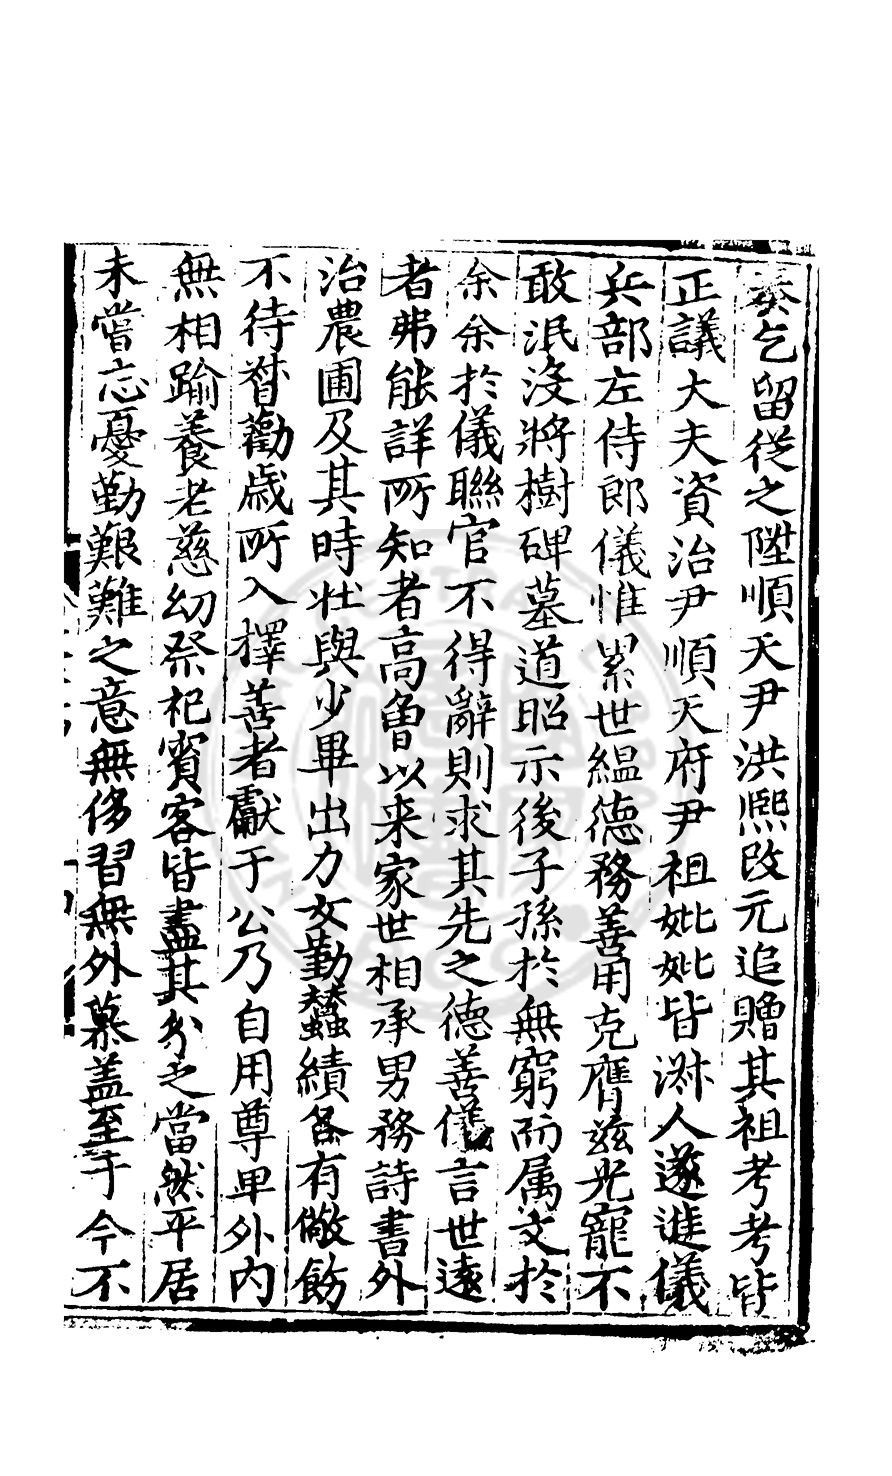 奏乞留從之陞順天尹洪熈改元追贈其祖考考皆
正議大夫資治尹順天府尹祖妣妣皆淋人遂進儀
兵部左侍郎儀惟累世緼德務善用克膺玆光寵不
敢泯没將樹碑墓道昭示後子孫於無窮而属文於
余余於儀聯官不得辭則求其先之德善儀言世逺
者弗能詳所知者高曾以来家世相承男務詩書外
治農圃及其時壯與少畢出力女勤蠶績各有儆飭
不待督勸歳所入擇善者獻于公乃自用尊卑外内
無相踰養老慈幼祭祀賓客皆盡其分之當然平居
未嘗忘憂勤艱難之意無侈習無外慕盖至于今不